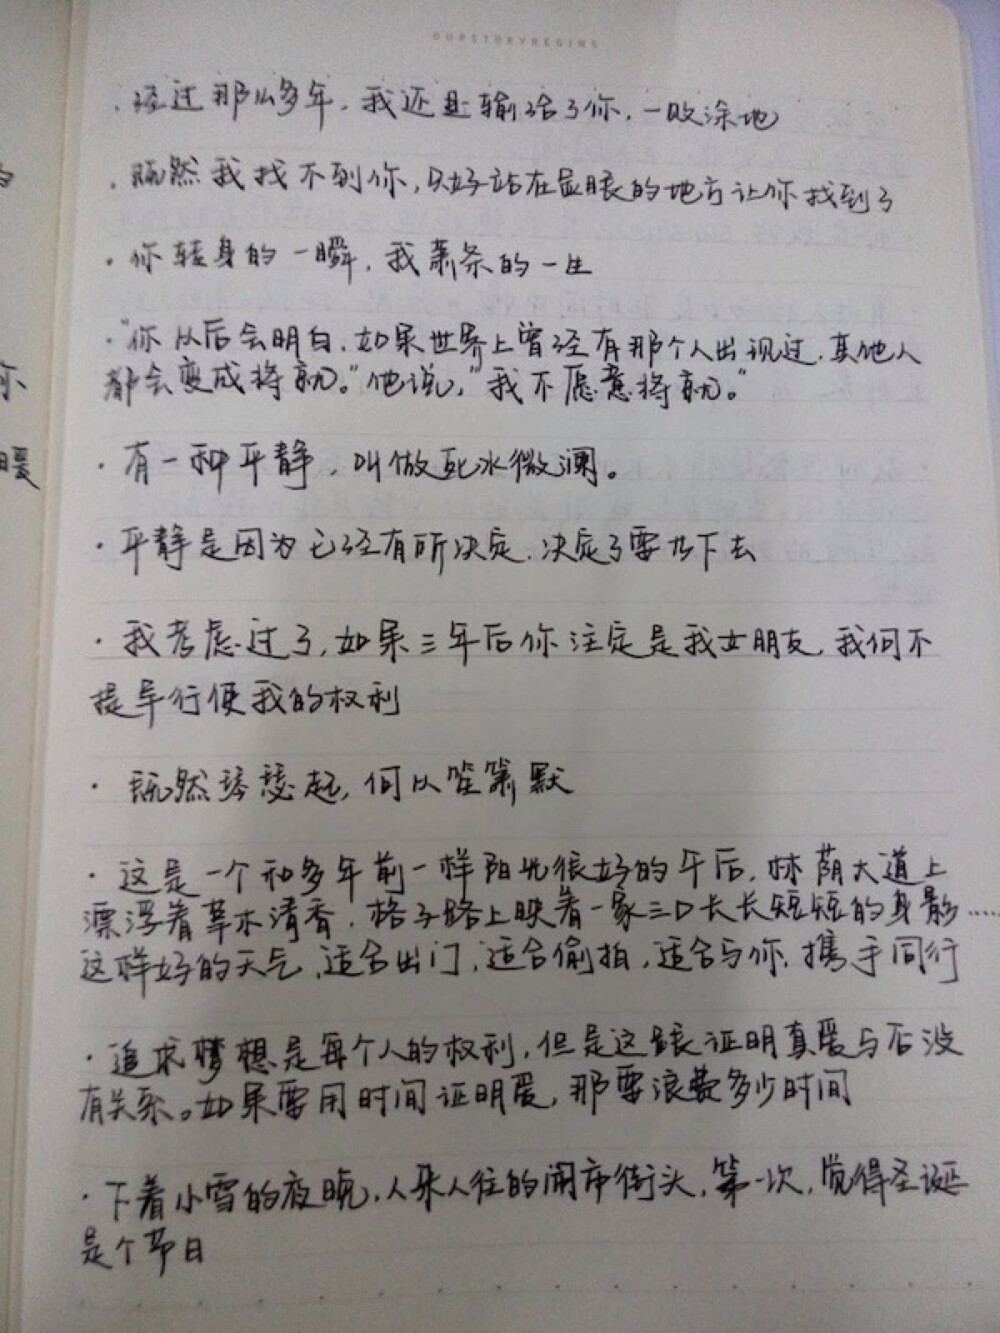 OURSTORYBEGINS
·经过那么多年,我还是输给了你,一败涂地
·既然我找不到你,只好站在显眼的地方让你找到了
·你转身的一瞬,我萧条的一生
·“你从后会明白,如果世界上曾经有那个人出现过,其他人
都会变成将就。”他说,“我不愿意将就。”
·有一种平静,叫做死水微澜。
·平静是因为已经有所决定,决定了要放下去
·我考虑过了,如果三年后你注定是我女朋友,我何不
提早行使我的权利
·既然琴瑟起,何以笙箫默
·这是一个和多年前一样阳光很好的午后,林荫大道上
漂浮着草木清香,格子路上映着一家三口长长短短的身影……
这样好的天气,适合出门,适合偷拍,适合与你,携手同行
·追求梦想是每个人的权利,但是这跟证明真爱与否没
有关系。如果要用时间证明爱,那要浪费多少时间
·下着小雪的夜晚,人来人往的闹市街头,第一次,觉得圣诞
是个节日
你
暖